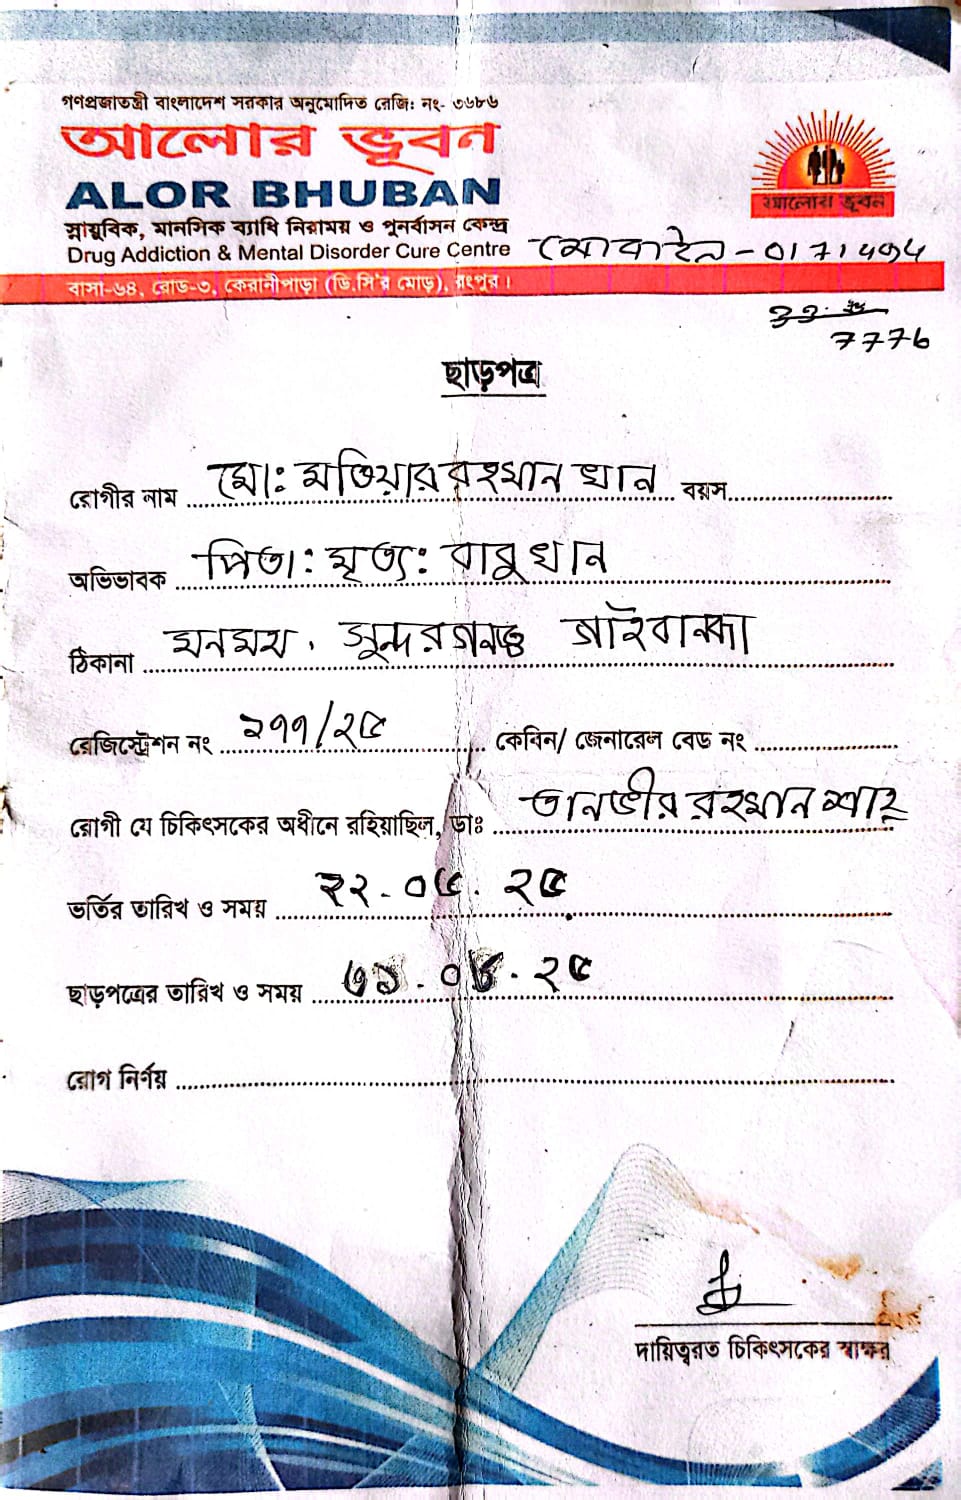 গণপ্রজাতন্ত্রী বাংলাদেশ সরকার অনুমোদিত রেজি: নং- ৩৬৮৬
আলোর ভূবন
ALOR BHUBAN
স্নায়ুবিক, মানসিক ব্যাধি নিরাময় ও পুনর্বাসন কেন্দ্র
Drug Addiction & Mental Disorder Cure Centre
আলোর ভূবন
মোবাইল -
বাসা-৬৪, রোড-৩, কেরানীপাড়া (ডি.সি'র মোড়), রংপুর।
ছাড়পত্র
রোগীর নাম মো: মতিয়ার রহমান খান বয়স
অভিভাবক পিতা: মৃত্য: বাবু খান
ঠিকানা মনমথ, সুন্দরগঞ্জ গাইবান্ধা
রেজিস্ট্রেশন নং ২৭৭/২৫ কেবিন/ জেনারেল বেড নং
রোগী যে চিকিৎসকের অধীনে রহিয়াছিল, ডাঃ তানভীর রহমান শাহ্
ভর্তির তারিখ ও সময় ২২-০৫. ২৫
ছাড়পত্রের তারিখ ও সময় . ২৫
রোগ নির্ণয়
দায়িত্বরত চিকিৎসকের স্বাক্ষর